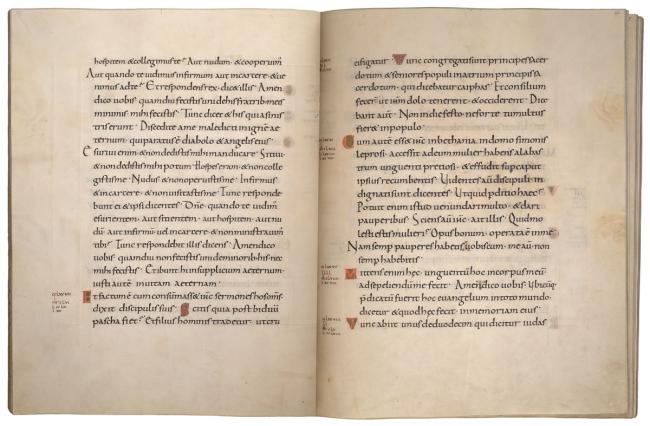 hospitem & collegimus te · Aut nudum · & cooperuim̄
Aut quando te uidimus infirmum aut in carcere · & ue
nimus ad te · Et respondens rex · dic& illis · Amen
dico uobis quamdiu fecistis uni de his fratribus meis
minimis mihi fecistis · Tunc dic& & his qui a sinis
tris erunt · Discedite a me maledicti in ignē ae
ternum · qui paratus ē diabolo & angelis eius
Esuriui enim · & non dedistis mihi manducare · Sitiui
& non dedistis mihi potum · Hospes eram · & non colle
gistis me · Nudus · & non operuistis me · Infirmus
& in carcere · & non uisitastis me · Tunc responde
bunt ei & ipsi dicentes · Dn̄e · quando te uidim̄
esurientem · aut sitientem · aut hospitem · aut nu
dū · aut infirmū · uel in carcere · & non ministrauim̄
tibi · Tunc respondebit illis dicens · Amen dico
uobis · quamdiu non fecistis uni de minoribus his · nec
mihi fecistis · Et ibunt hi in supplicium aeternum ·
iusti autē in uitam aeternam ·
Et factum ē cum consummass& ih̄s sermones hos om̄s ·
dixit discipulis suis · Scitis quia post biduū
pascha fi& · Et filius hominis trad&ur · ut cru
cifigatur · Tunc congregati sunt principes sacer
dotum · & seniores populi in atrium principis sa
cerdotum · qui dicebatur caiphas · Et consilium
fecer̄ ut ih̄m dolo tenerent · & occiderent · Dice
bant aut̄ · Non in die festo · ne forte tumultus
fier& in populo ·
Cum autē ess& ih̄s in bethania · in domo simonis
leprosi · accessit ad eum mulier habens alabas
trum unguenti pretiosi · & effudit super caput
ipsius recumbentis · Uidentes aū discipuli in
dignati sunt dicentes · Ut quid p̄ditio haec ·
Potuit enim istud uenundari multo · & dari
pauperibus · Sciens aū ih̄s · ait illis · Quid mo
lesti estis mulieri · Opus bonum · operata ē in me
Nam semp pauperes hab&is uobiscum · me aū non
semp habebitis
Mittens enim haec · unguentū hoc in corpus meū
ad sepeliendū me fecit · Amen dico uobis · Ubicūq
p̄dicatū fuerit hoc euangelium in toto mundo ·
dic&ur & quod haec fecit in memoriam eius ·
Tunc abiit unus de duodecim qui dicitur iudas